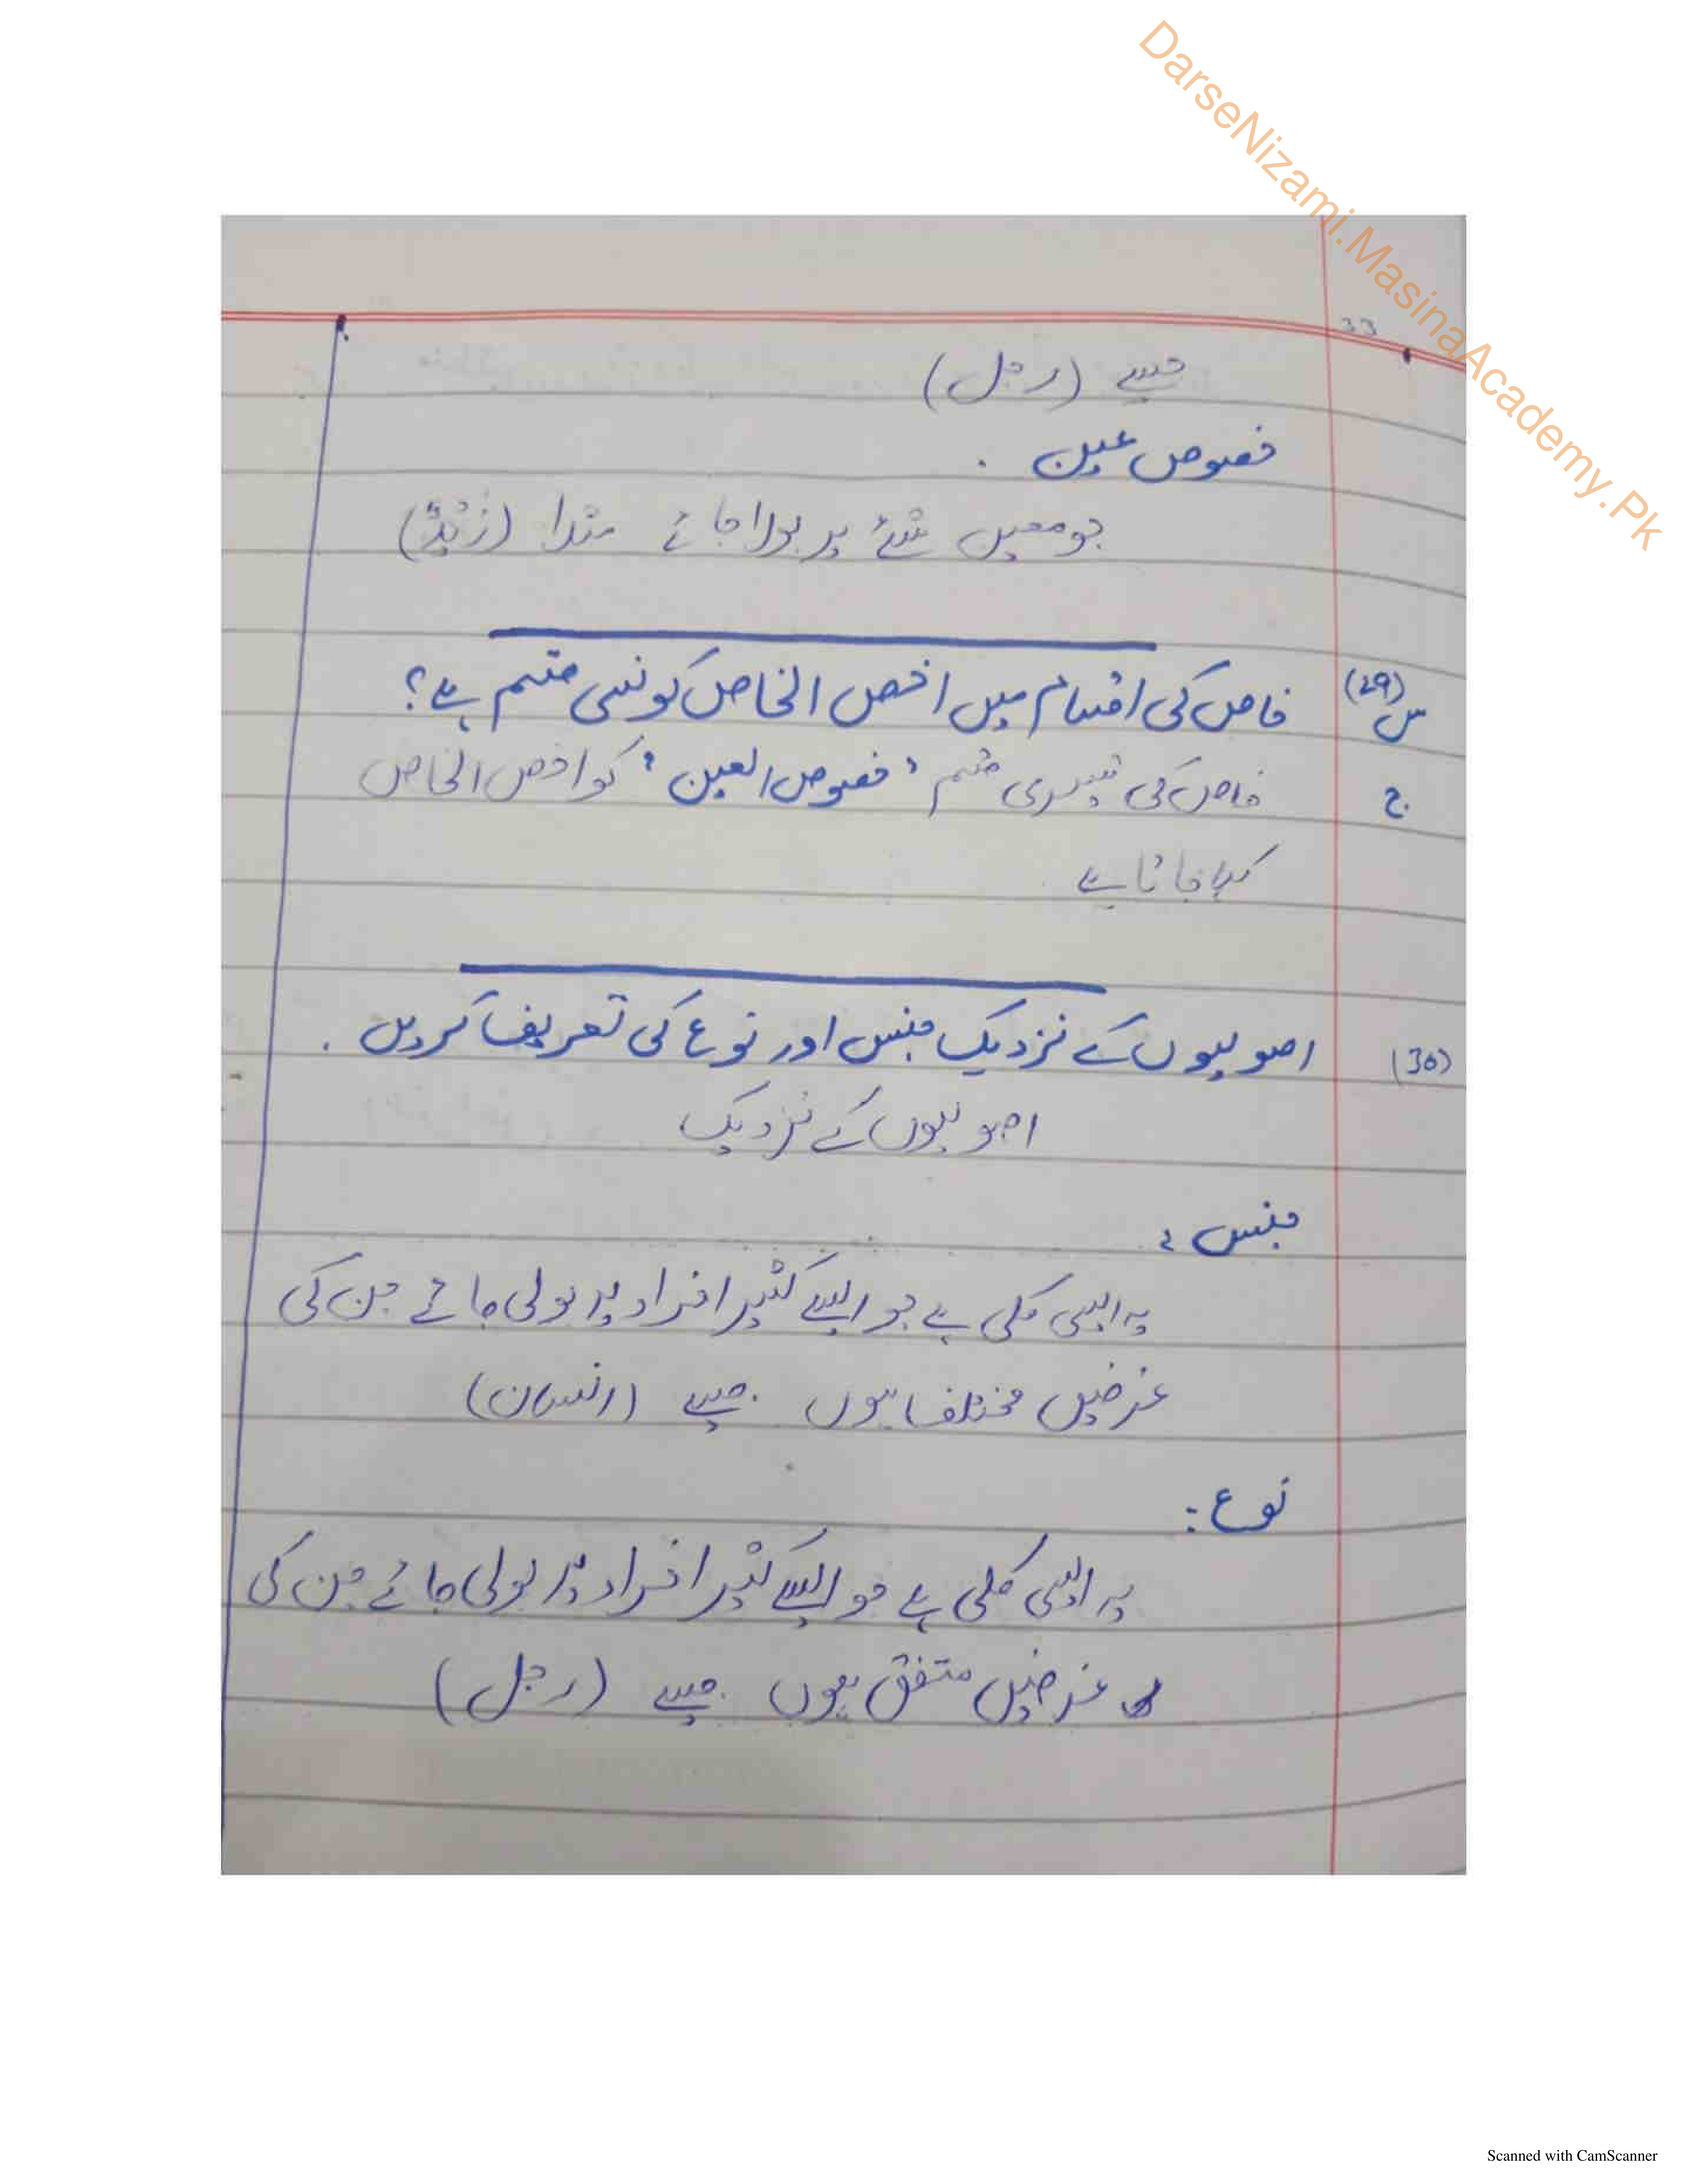 DarseNizami.MasinaAcademy.Pk
33
جیسے (رجل)
خصوص عین .
جو معین شئے پر بولا جائے مثلا (زَیْدٌ)
س (29) خاص کی اقسام میں اخص الخاص کونسی قسم ہے؟
ج خاص کی تیسری قسم ' خصوص العین ' کو اخص الخاص
کہا جاتا ہے
(30) اصولیوں کے نزدیک جنس اور نوع کی تعریف کریں .
اصولیوں کے نزدیک
جنس :
یہ ایسی کلی ہے جو ایسے کثیر افراد پر بولی جائے جن کی
غرضیں مختلف ہوں . جیسے (انسان)
نوع :
یہ ایسی کلی ہے جو ایسے کثیر افراد پر بولی جائے جن کی
غرضیں متفق ہوں . جیسے (رجل)
Scanned with CamScanner